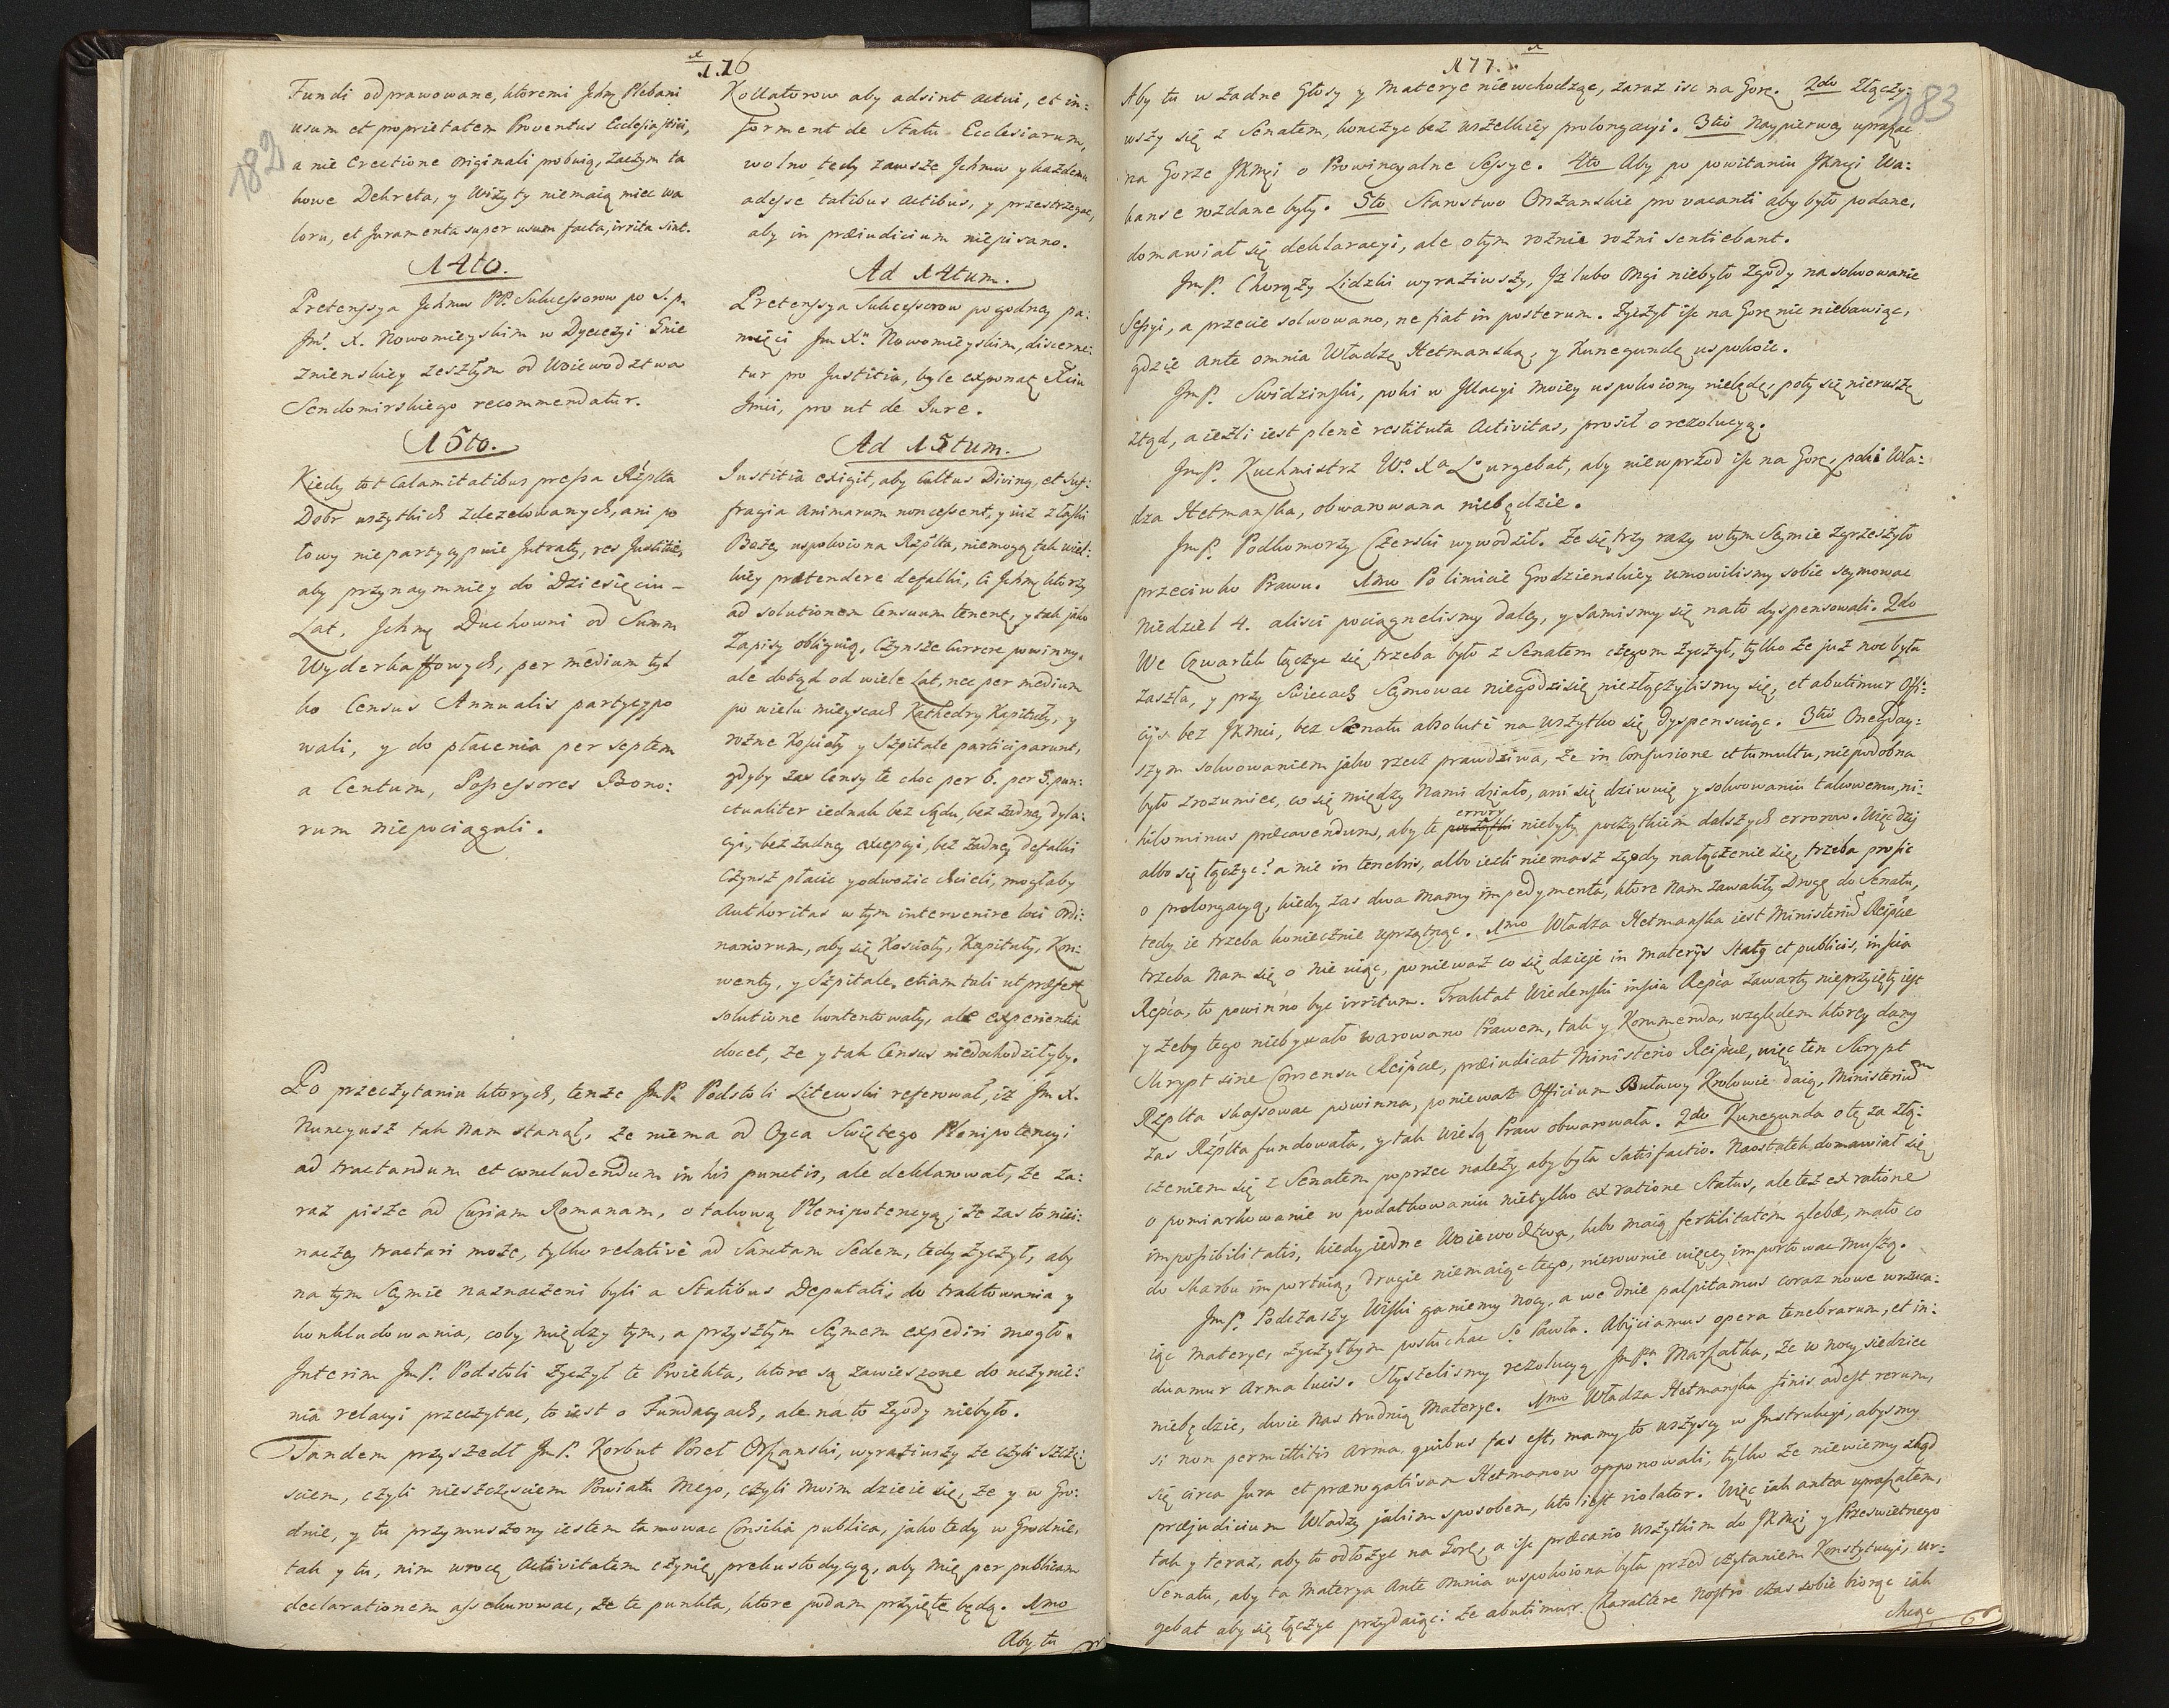 176
182
Fundi odprawowane, ktoremi Jchmę Plebani
usum et proprietatem Proventus Ecclesiastici,
a nie Erectione originali probuią, zaczym ta
kowe Dekreta, y Wizyty niemaią miec wa
loru, et Juramenta super usum facta, irrita sint.
14to.
Pretensya Jchmw PP. Sukcessorow po S. p.
Jmć. X. Nowomieyskim w Dyecezyi Gnie
znienskiey zeszłym od Woiewodztwa
Sendomirskiego recommendatur.
15to.
Kiedy tot Calamitatibus pressa Rzplta
Dobr wszytkich zdezelowanych, ani po
łowy niepartycypuie Intraty, res Justitiæ,
aby przynaymniey do Dziesięciu
Lat, Jchmę Duchowni od Summ
Wyderkaffowych, per medium tyl
ko Census Annualis partycypo
wali, y do płacenia per septem
a Centum, Possessores Bono:
rum niepociągali.
Kollatorow aby adsint actui, et in:
forment de Statu Ecclesiarum,
wolno tedy zawsze Jchmw y każdemu
adesse talibus actibus, y przestrzegac,
aby in præiudicium niepisano.
Ad 14tum.
Pretensya Sukcessorow po godney pa:
mięci Jm Xu Nowomieyskim, discerne:
tur pro Justitia, byle exponat
Jmci, pro ut de Jure.
Ad 15tum.
Justitia exigit, aby Cultus Diving, et suf:
fragia Animarum non cessent, y iuż z łaski
Bożey uspokoiona Rzplta, niemogą tak wiel:
kiey prætendere defalki, Ci Jchmę ktorzy
ad solutionem Censuum tenent, y tak jako
Zapisy obliguią, Czynsze Currere powinny,
ale dotąd od wiele Lat, nec per medium
po wielu mieyscach Kathedry Kapituły, y
rożne Kościoły y Szpitale participarunt,
gdyby zas Censy te choc per 6. per 5. pun:
ctualiter iednak bez sądu, bez żadney dyla:
cyi, bez żadney excepcyi, bez żadney defalki
Czynsz płacic y odwozic chcieli, mogłaby
Authoritas w tym intervenire loci Ordi:
nariorum, aby się Kościoły, Kapituły, Kon:
wenty, y Szpitale, etiam tali ut præfert
solutione kontentowały, ale experientia
docet, że y tak Census niedochodziłyby.
Po przeczytaniu ktorych, tenże JmP. Podstoli Litewski referował, iż Jm X.
Nuncyusz tak nam stanął, że niema od Oyca Swiętego Plenipotencyi
ad tractandum et concludendum in his punctis, ale deklarował, że za:
raz pisze ad Curiam Romanam, o takową Plenipotencyą; że zas to niei:
naczey tractari może, tylko relative ad Sanctam Sedem, tedy życzył, aby
na tym Seymie naznaczeni byli a Statibus Deputati, do traktowania y
konkludowania, coby między tym, a przyszłym Seymem expediri mogło.
Interim JmP. Podstoli życzył te Proiekta, ktore są zawieszone do uczynie:
nia relacyi przeczytac, to iest o Fundacyach, ale na to zgody niebyło.
Tandem przyszedł JmP. Korbut Poseł Orszanski, wyraziwszy że czyli szczę:
sciem, czyli nieszczęsciem Powiatu mego, czyli moim dzieie się, że y w Gro:
dnie, y tu przymuszony iestem tamowac Consilia publica, jako tedy w Grodnie,
tak y tu, nim wrocę Activitatem czynię prekustodycyą, aby mię per publicam
declarationem assekurowac, że te punkta, ktore podam przyięte będą. 1mo
Aby tu
177.
183
Aby tu w żadne Głosy y Materye niewchodząc, zaraz isc na Gorę. 2do Złączy:
wszy się z Senatem, konczyc bez wszelkiey prolongacyi. 3tio Naypierwey upraszac
na Gorze JKMci o Prowincyalne Sessye. 4to Aby po powitaniu JKMci Wa:
kanse rozdane były. 5to Starostwo Orszanskie pro vacanti aby było podane,
domawiał się deklaracyi, ale o tym rożnie rożni sentiebant.
JmP. Chorąży Lidzki wyraziwszy, Jż lubo onegi niebyło zgody na solwowanie
Sessyi, a przecie solwowano, ne fiat in posterum. Życzył isc na Gorę nic niebawiąc,
gdzie ante omnia Władzę Hetmanską, y Kunegundę uspokoic.
JmP. Swidzinski, poki w Illacyi moiey uspokoiony niebędę, poty się nieruszę
ztąd, a ieżli iest plenè restituta Activitas, prosił o rezolucyą.
JmP. Kuchmistrz Wo. Xa Lo urgebat, aby niewprzod isc na Gorę, poki Wła:
dza Hetmanska, obwarowana niebędzie.
JmP. Podkomorzy Czerski wywodził. Że się trzy razy w tym Seymie zgrzeszyło
przeciwko Prawu. 1mo Po limicie Grodzienskiey umowilismy sobie seymowac
Niedziel 4. alisci pociągnelismy daley, y samismy się na to dyspensowali. 2do
We Czwartek łączyc się trzeba było z Senatem czegom życzył, tylko że już noc była
zaszła, y przy Swiecach Seymowac niegodzi się niezłączylismy się, et abutimur Offi:
cijs bez JKMci, bez Senatu absolutè na wszytko się dyspensuiąc. 3tio Onegday:
szym solwowaniem jako rzecz prawdziwa, że in Confusione et tumultu, niepodobna
było zrozumiec, co się między Nami działo, ani się dziwuię y solwowaniu takowemu, ni:
hilominus præcavendum, aby te errory niebyły początkiem dalszych errorow. Więc dziś
albo się łączyc? a nie in tenebris, albo iezli niemasz zgody na łączenie się, trzeba prosic
o prolongacyą, kiedy zas dwa mamy impedymenta, ktore nam zawaliły Drogę do Senatu,
tedy ie trzeba koniecznie uprzątnąc. 1mo Władza Hetmanska iest Ministeriũ Reipcæ
trzeba nam się o nie uiąc, ponieważ co się dzieje in materÿs Statg et publicis, inscia
Repca, to powinno byc irritum. Traktat Wiedenski inscia Repca zawarty nieprzyięty iest
y żeby tego niebywało warowano Prawem, tak y Kommenda, względem ktorey dany
Skrypt sine Consensu Reipcæ, præiudicat Ministerio Reipcæ, więc ten Skrypt
Rzplta skassowac powinna, ponieważ Officium Buławy Krolowie daią, Ministerium
zas Rzplta fundowała, y tak wielą Praw obwarowała. 2do Kunegunda otę za złą:
czeniem się z Senatem poprzec należy aby była Satisfactio. Naostatek domawiał się
o pomiarkowanie w podatkowaniu nietylko ex ratione Status, ale też ex ratione
impossibilitatis, kiedy iedne Woiewodztwa, lubo maią fertilitatem glebæ, mało co
do Skarbu importuią, drugie niemaiąc tego, nierownie więcey importowac muszą.
JmP. Podczaszy Wiski ganiemy nocy, a we dnie palpitamus coraz nowe wrzuca:
iąc materye, życzyłbym posłuchac So Pawła. Abijciamus opera tenebrarum, et in:
duamur arma lucis. Słyszelismy rezolucyą JmPa Marszałka, że w nocy siedziec
niebędzie, dwie nas trudnią Materye. 1mo Władza Hetmanska finis adest rerum,
si non permittitis arma, quibus fas est, mamy to wszyscy w Instrukcyi, abysmy
się circa Jura et prærogativam Hetmanow opponowali, tylko że niewiemy ztąd
præjudicium Władzy jakim sposobem, kto iest violator. Więc iak antea upraszałem,
tak y teraz, aby to odłożyc na Gorę, a isc præcario wszytkim do JKMci y Przeswietnego
Senatu, aby ta materya ante omnia uspokoiona była przed czytaniem Konstytucyi, ur:
gebat aby się łączyc przydaiąc: że abutimur Charaktere nostro czas sobie biorąc iak
chcąc